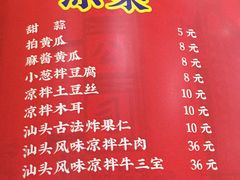 凉菜
甜蒜 5元
拍黄瓜 8元
麻酱黄瓜 8元
小葱拌豆腐 8元
凉拌土豆丝 10元
凉拌木耳 10元
汕头古法炸果仁 10元
汕头风味凉拌牛肉 36元
汕头风味凉拌牛三宝 36元